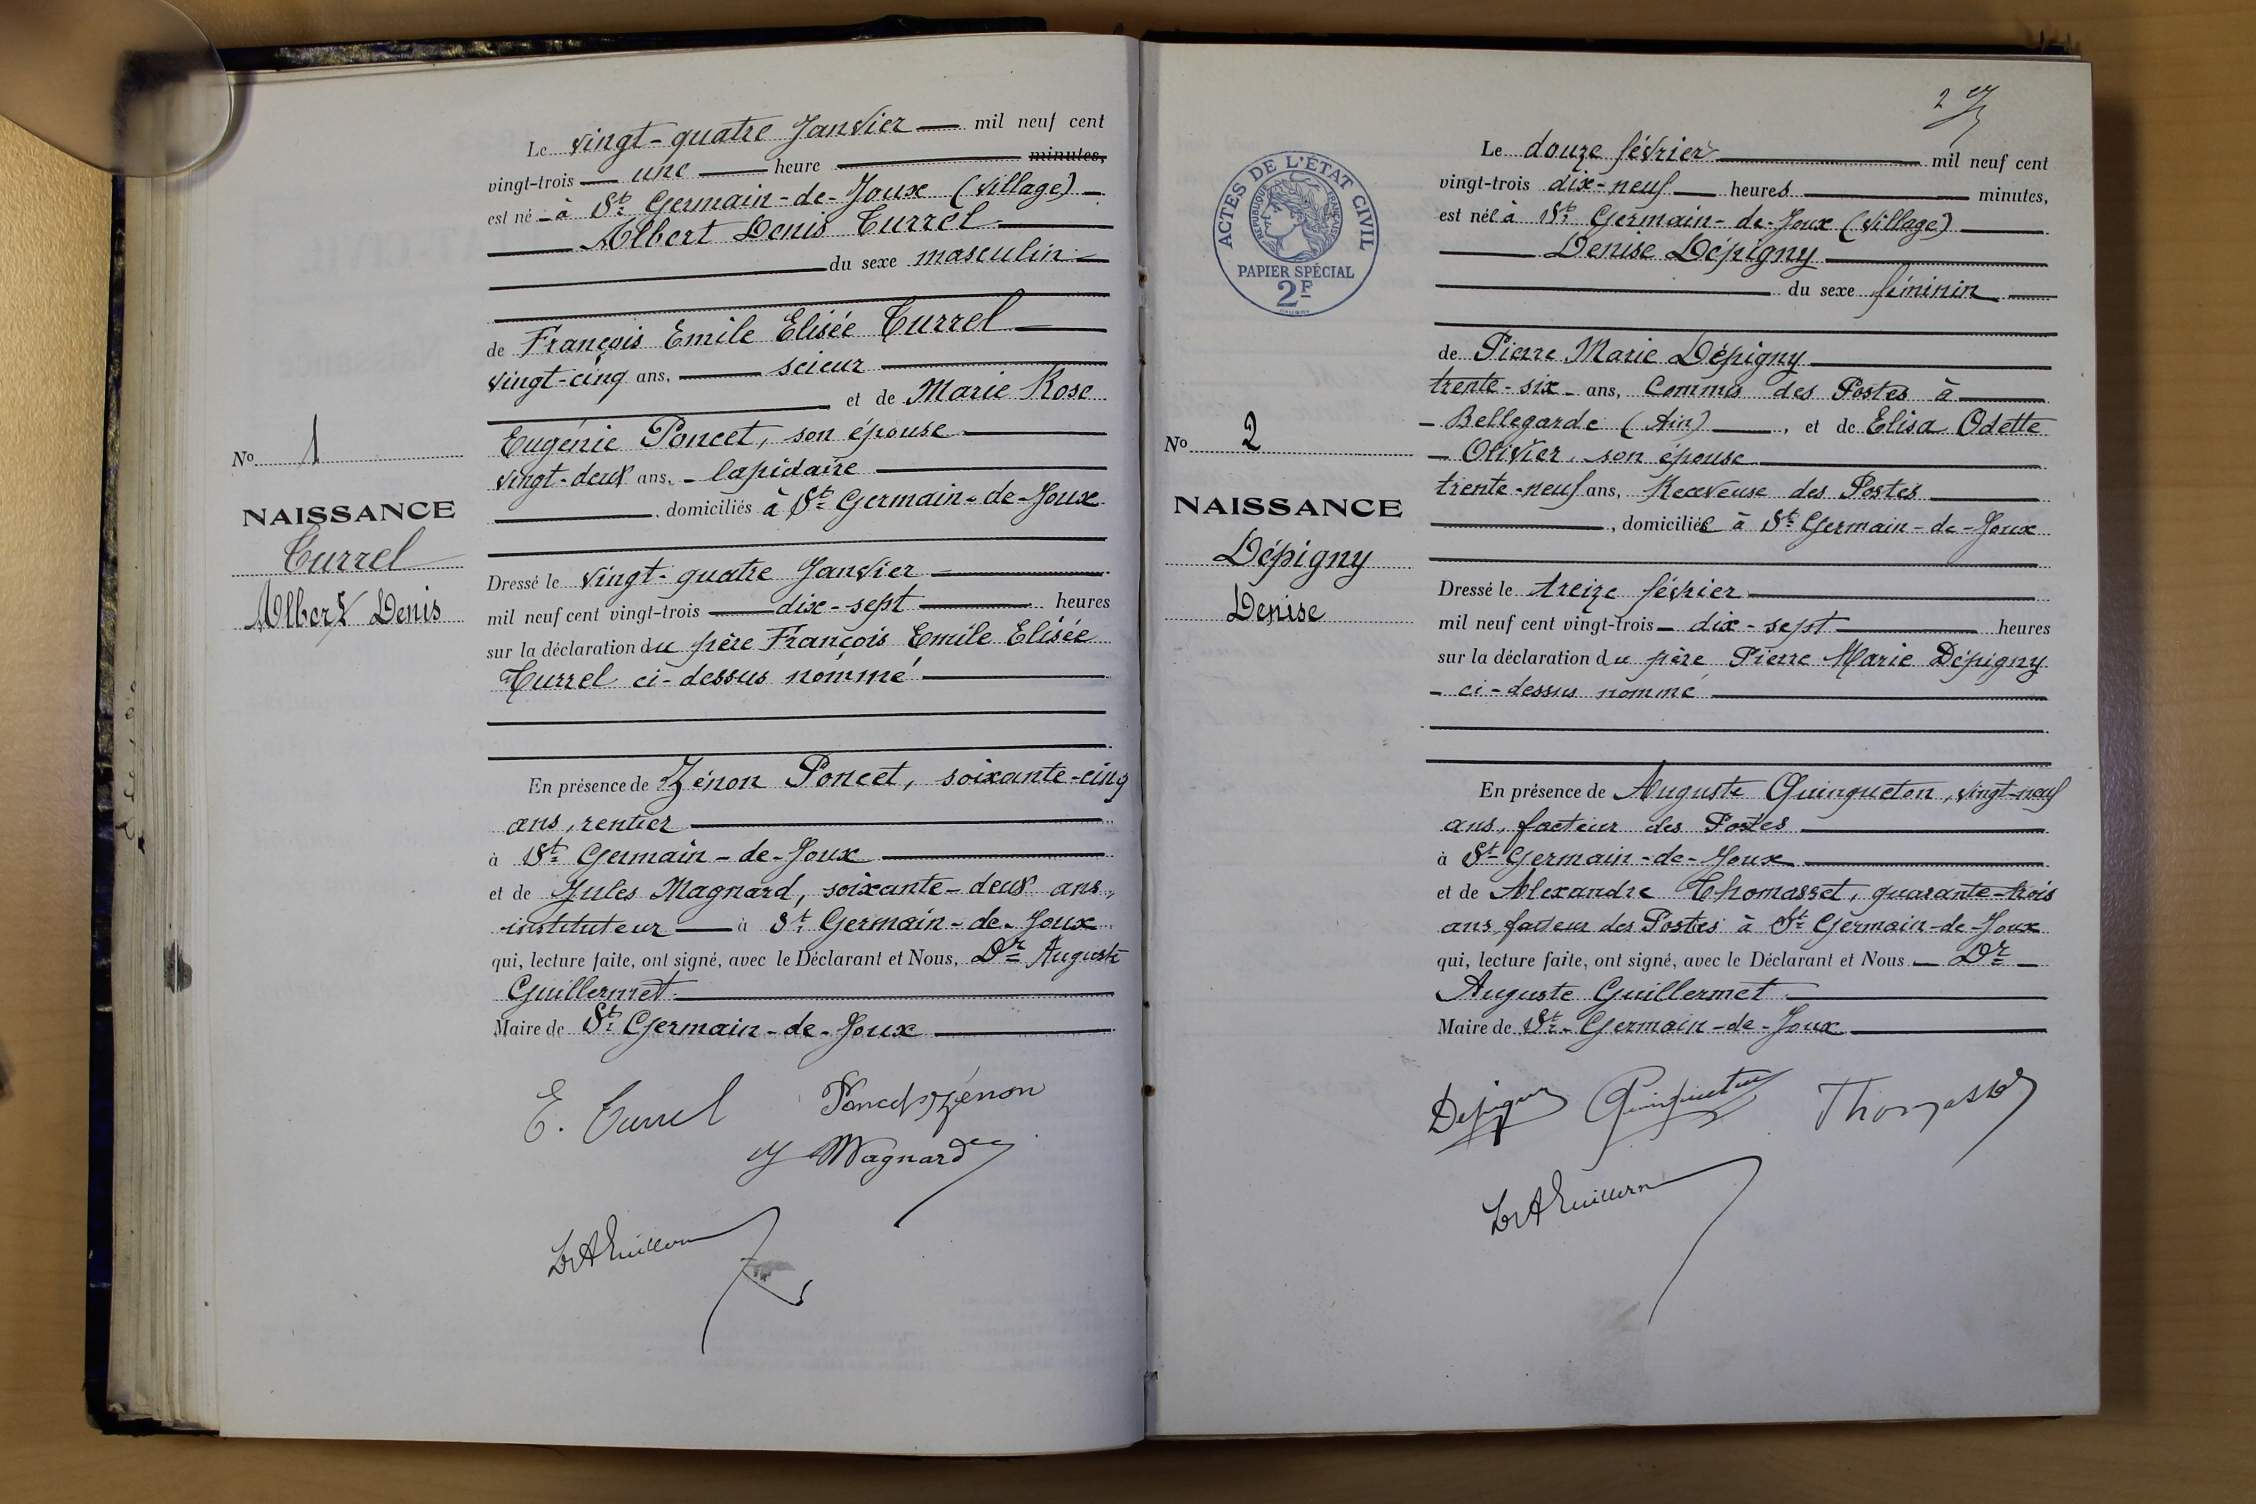 Le vingt-quatre Janvier mil neuf cent
vingt-trois une heure minutes,
est né à St Germain-de-Joux (village)
Albert Denis Turrel
du sexe masculin
de François Emile Elisée Turrel
vingt-cinq ans, scieur
et de Marie Rose
Eugénie Poncet, son épouse
vingt-deux ans, lapidaire
, domiciliés à St Germain-de-Joux
No 1
NAISSANCE
Turrel
Albert Denis
Dressé le vingt-quatre Janvier
mil neuf cent vingt-trois dix-sept heures
sur la déclaration du père François Emile Elisée
Turrel ci-dessus nommé
En présence de Zénon Poncet, soixante-cinq
ans, rentier
à St Germain-de-Joux
et de Jules Magnard, soixante-deux ans,
instituteur à St Germain-de-Joux
qui, lecture faite, ont signé, avec le Déclarant et Nous, Dr Auguste
Guillermet
Maire de St Germain-de-Joux
E. Turrel Poncet Zénon
J Magnard
Dr A Guillerm
2
ACTES DE L'ÉTAT CIVIL
RÉPUBLIQUE FRANÇAISE
PAPIER SPÉCIAL
2F
Le douze février mil neuf cent
vingt-trois dix-neuf heures minutes,
est née à St Germain-de-Joux (village)
Denise Dépigny
du sexe féminin
de Pierre Marie Dépigny
trente-six ans, Commis des Postes à
Bellegarde (Ain), et de Elisa Odette
Olivier, son épouse
trente-neuf ans, Receveuse des Postes
, domiciliée à St Germain-de-Joux
No 2
NAISSANCE
Dépigny
Denise
Dressé le treize février
mil neuf cent vingt-trois dix-sept heures
sur la déclaration du père Pierre Marie Dépigny
ci-dessus nommé
En présence de Auguste Quinqueton, vingt-neuf
ans, facteur des Postes
à St Germain-de-Joux
et de Alexandre Thomasset, quarante-trois
ans, facteur des Postes à St Germain-de-Joux
qui, lecture faite, ont signé, avec le Déclarant et Nous Dr
Auguste Guillermet
Maire de St Germain-de-Joux
Depigny Quinqueton Thomasset
Dr A Guillerm